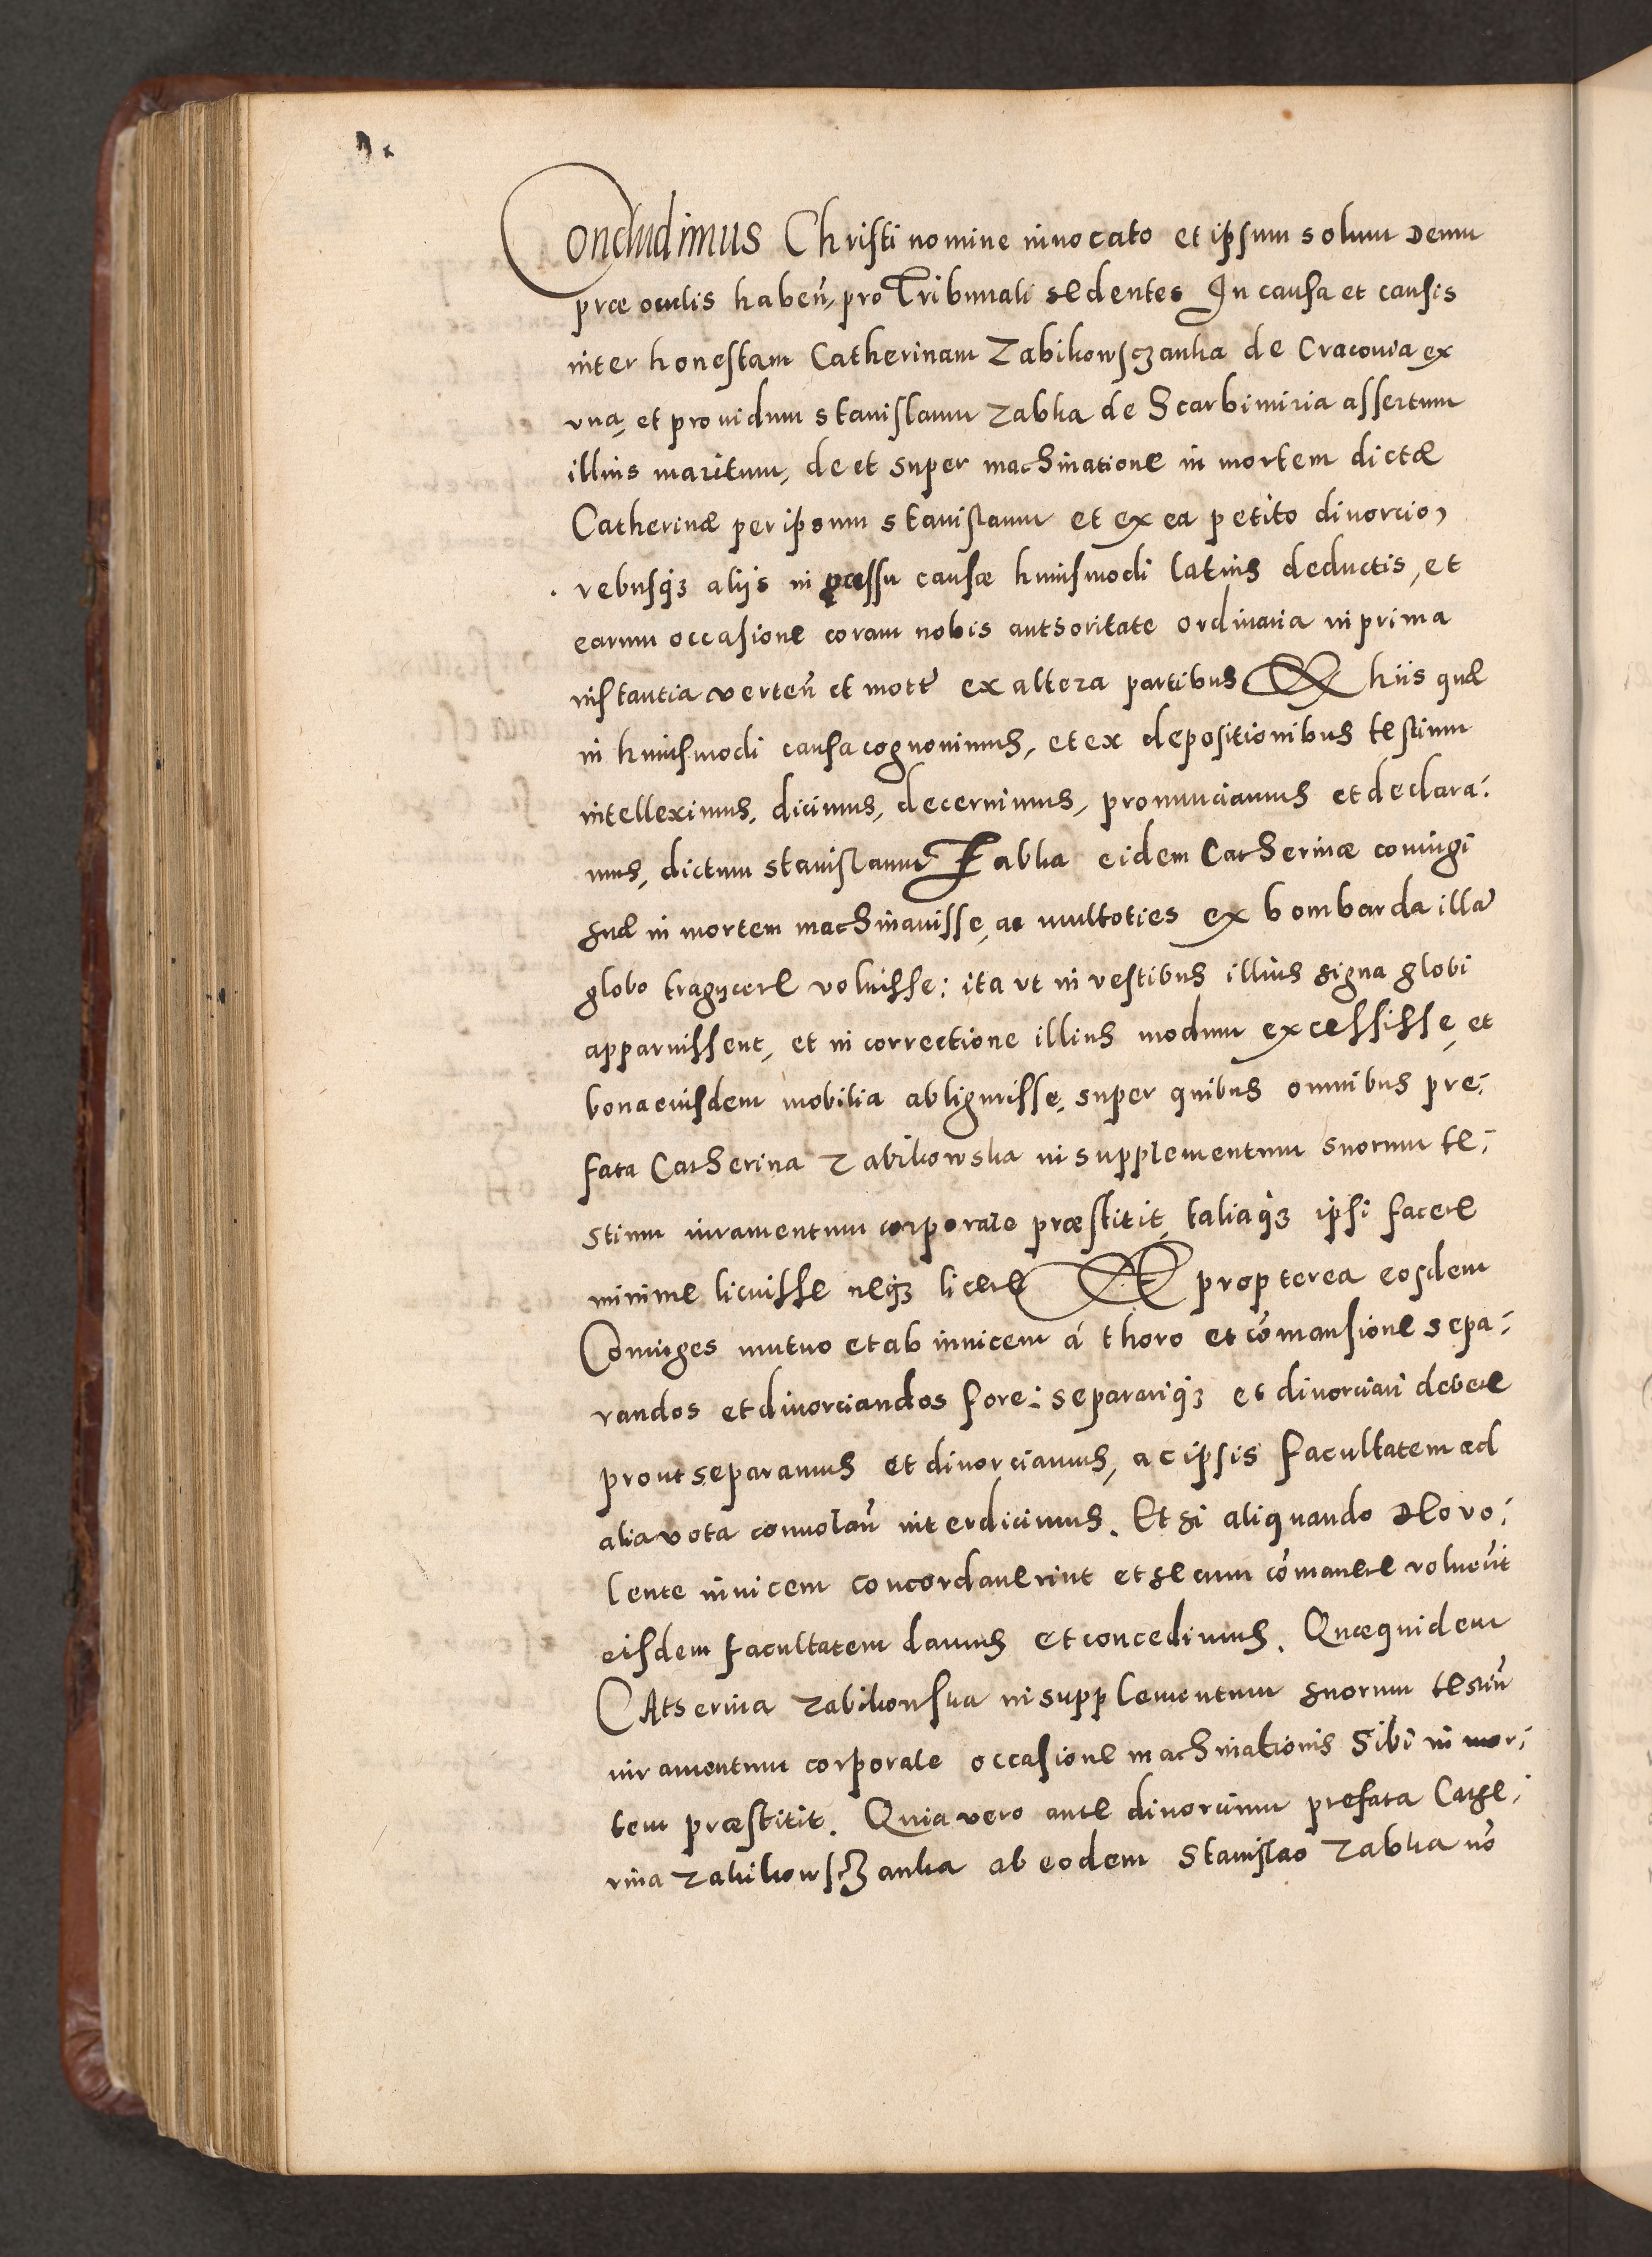 Concludimus Christi nomine inuocato et ipsum solum Deum
præ oculis haben̄, pro Tribunali sedentes In causa et causis
inter honestam Catherinam Zabikowsczanka de Cracouia ex
vna, et prouidum Stanislaum Zabka de Scarbimiria assertum
illius maritum, de et super machinatione in mortem dictæ
Catherinæ per ipsum Stanislaum et ex ea petito diuorcio,
rebusq; alijs in processu causæ huiusmodi latius deductis, et
earum occasione coram nobis authoritate ordinaria in prima
instantia verten̄ et mott̄ ex altera partibus Ex hiis quæ
in huiusmodi causa cognouimus, et ex depositionibus testium
intelleximus, dicimus, decernimus, pronunciamus et declara:
mus, dictum Stanislaum Zabka eidem Catherinæ coniugi
suæ in mortem machinauisse, ac multoties ex bombarda illā
globo tragijcere voluisse: ita vt in vestibus illius signa globi
apparuissent, et in correctione illius modum excessisse, et
bona eiusdem mobilia abligurisse, super quibus omnibus pre:
fata Catherina Zabikowska in supplementum suorum te:
stium iuramentum corporale præstitit, taliaq; ipsi facere
minime licuisse neq; licere Et propterea eosdem
Coniuges mutuo et ab inuicem á thoro et cōmansione sepa:
randos et diuorciandos fore: separariq; et diuorciari debere
prout separamus et diuorciamus, ac ipsis facultatem ad
alia vota conuolan̄ interdicimus. Et si aliquando Deo vo:
lente inuicem concordauerint et secum cōmanere voluerīt
eisdem facultatem damus et concedimus. Quæquidem
Catherina Zabikowska in supplementum suorum testiū
iuramentum corporale occasione machinationis sibi in mor:
tem præstitit. Quia vero ante diuorcium prefata Cathe:
rina Zabikowsczanka ab eodem Stanislao Zabka nō